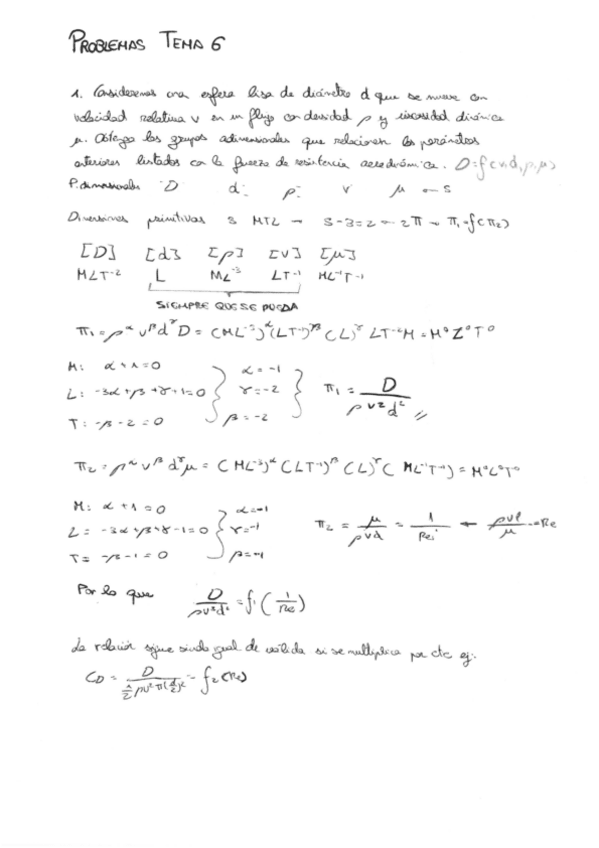 PROBLEMAS TEMA 6
1. Consideremos una esfera lisa de diámetro d que se mueve con
velocidad relativa v en un flujo con densidad ρ y viscosidad dinámica
μ. Obtenga los grupos adimensionales que relacionen los parámetros
anteriores listados con la fuerza de resistencia aerodinámica. D=f(v,d,ρ,μ)
P. dimensionales D d: ρ: v μ → 5
Dimensiones primitivas 3 MTL → 5-3=2 → 2π → π₁=f(π₂)
[D] [d] [ρ] [v] [μ]
MLT⁻² L ML⁻³ LT⁻¹ ML⁻¹T⁻¹
SIEMPRE QUE SE PUEDA
π₁ = ρ^α v^β d^γ D = (ML⁻³)^α (LT⁻¹)^β (L)^γ LT⁻²M = M⁰L⁰T⁰
M: α+1=0
L: -3α+β+γ+1=0
T: -β-2=0
α=-1
γ=-2
β=-2
π₁ = D / ρv²d²
π₂ = ρ^α v^β d^γ μ = (ML⁻³)^α (LT⁻¹)^β (L)^γ (ML⁻¹T⁻¹) = M⁰L⁰T⁰
M: α+1=0
L= -3α+β+γ-1=0
T= -β-1=0
α=-1
γ=-1
β=-1
π₂ = μ / ρvd = 1 / Re ← ρvl / μ = Re
Por lo que D / ρv²d² = f₁(1/Re)
La relación sigue siendo igual de válida si se multiplica por cte ej:
C_D = D / ½ρv²π(d/2)² = f₂(Re)